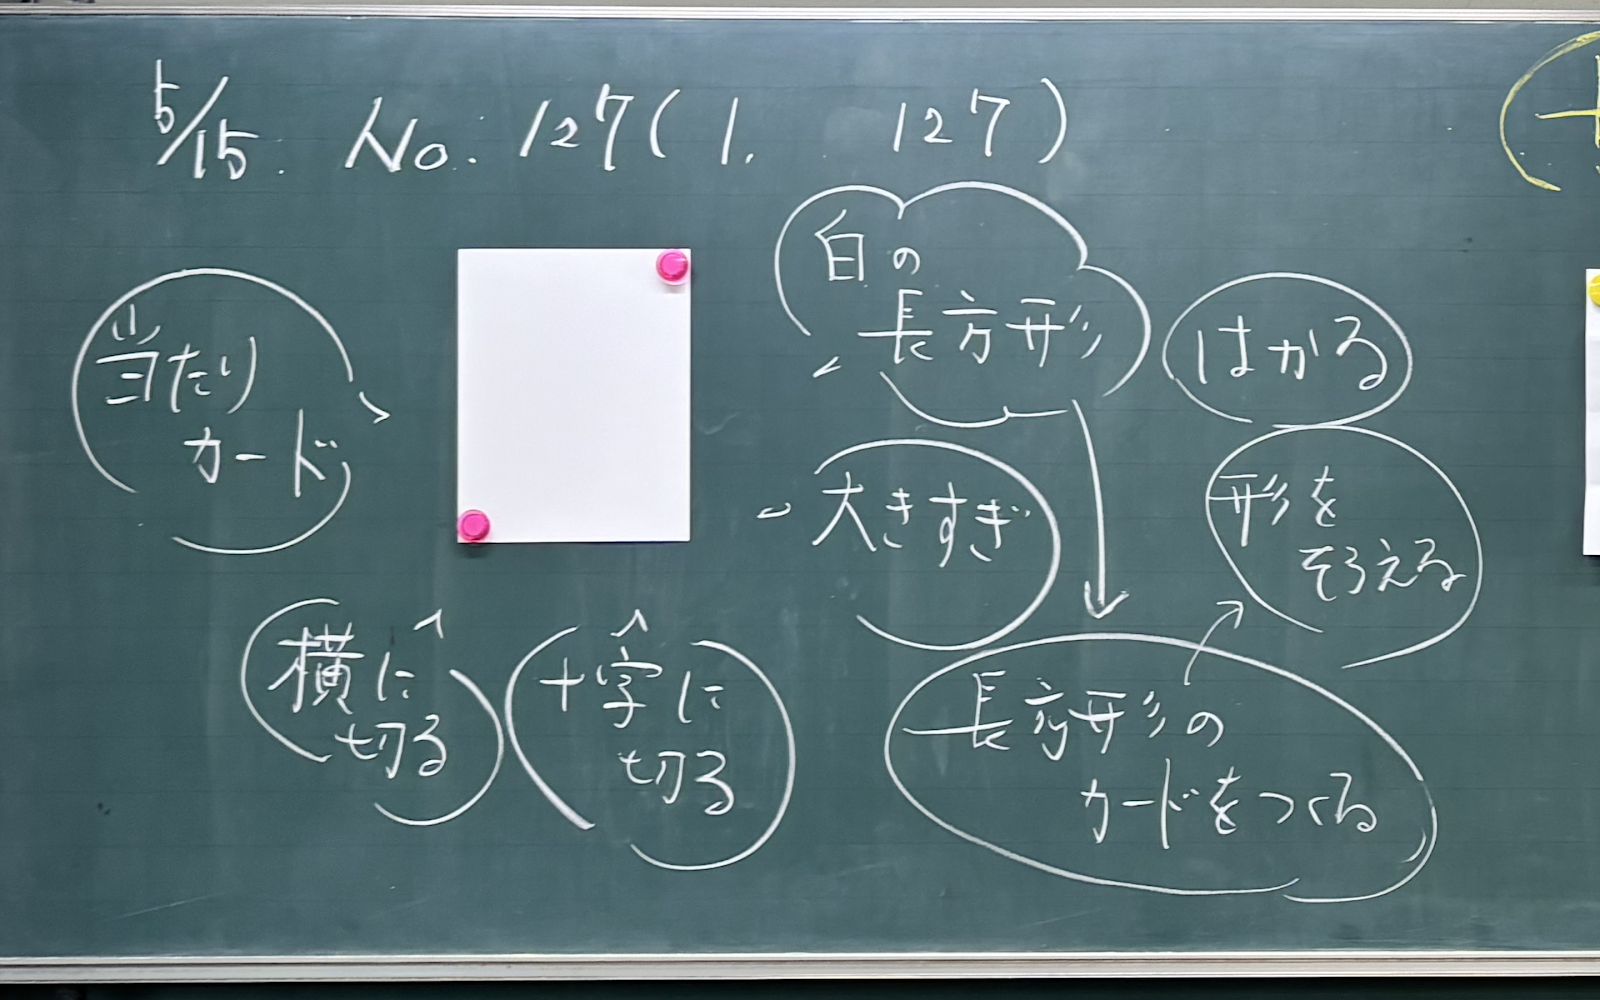 5/15. No. 127(1. 127)
白の
長方形
はかる
当たり
カード
大きすぎ
形を
そろえる
横に
切る
十字に
切る
長方形の
カードをつくる